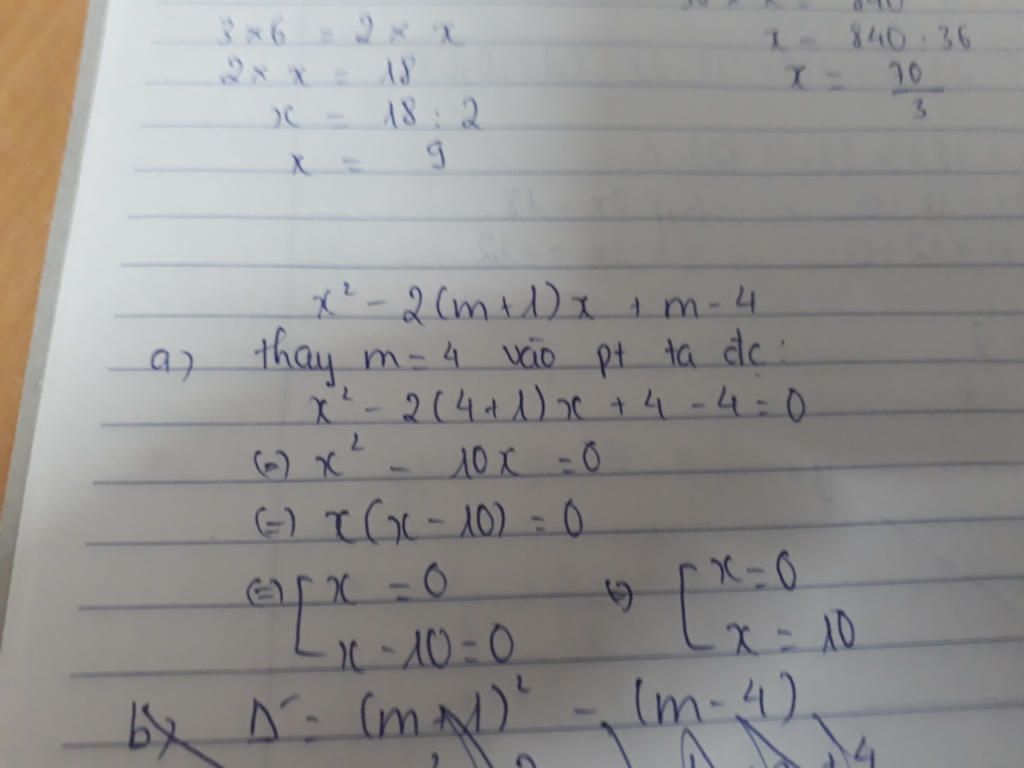 3 × 6 = 2 × x
2 × x = 18
x = 18 : 2
x = 9
x = 840 : 36
x = 70/3
x² - 2(m+1)x + m - 4
a) thay m = 4 vào pt ta đc:
x² - 2(4+1)x + 4 - 4 = 0
(=) x² - 10x = 0
(=) x(x - 10) = 0
(=) [ x = 0 (=) [ x = 0
x - 10 = 0 x = 10
b) Δ' = (m+1)² - (m - 4)